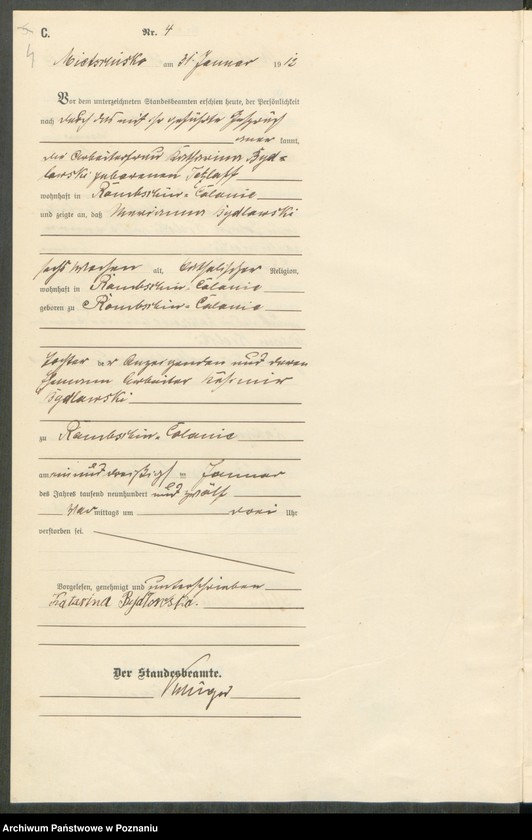 C.
Nr. 4
4
am 31 Januar 1912
Vor dem unterzeichneten Standesbeamten erschien heute, der Persönlichkeit
nach durch das mit ihr geführte Gespräch
aner kannt,
die Arbeiterfrau Katharina Byd-
lawski geborenen Tetzlaff
wohnhaft in Rombschin-Colonie
und zeigte an, daß Marianna Bydlawski
sechs Wochen alt, katholischer Religion,
wohnhaft in Rombschin-Colonie
geboren zu Rombschin-Colonie
Tochter der Anzeigenden und deren
Ehemann Arbeiter Kasimir
Bydlawski
zu Rombschin-Colonie
am einunddreißigst en Januar
des Jahres tausend neunhundert und zwölf
Vor mittags um drei Uhr
verstorben sei.
Vorgelesen, genehmigt und unterschrieben
Katarina Bydlowska.
Der Standesbeamte.
Krüger
Archiwum Państwowe w Poznaniu